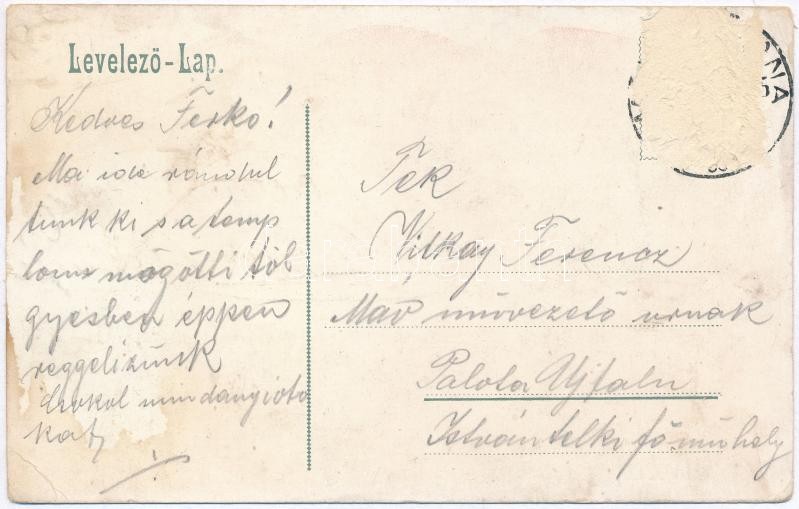 Levelező-Lap.
Kedves Ferkó!
Ma ide rándul
tunk ki s a temp
lom mögötti töl
gyesben éppen
reggelizünk
Csókol mindanyioto
kat
Tek
Vitkay Ferencz
Máv művezető urnak
Palota Ujfalu
Istvántelki főműhely